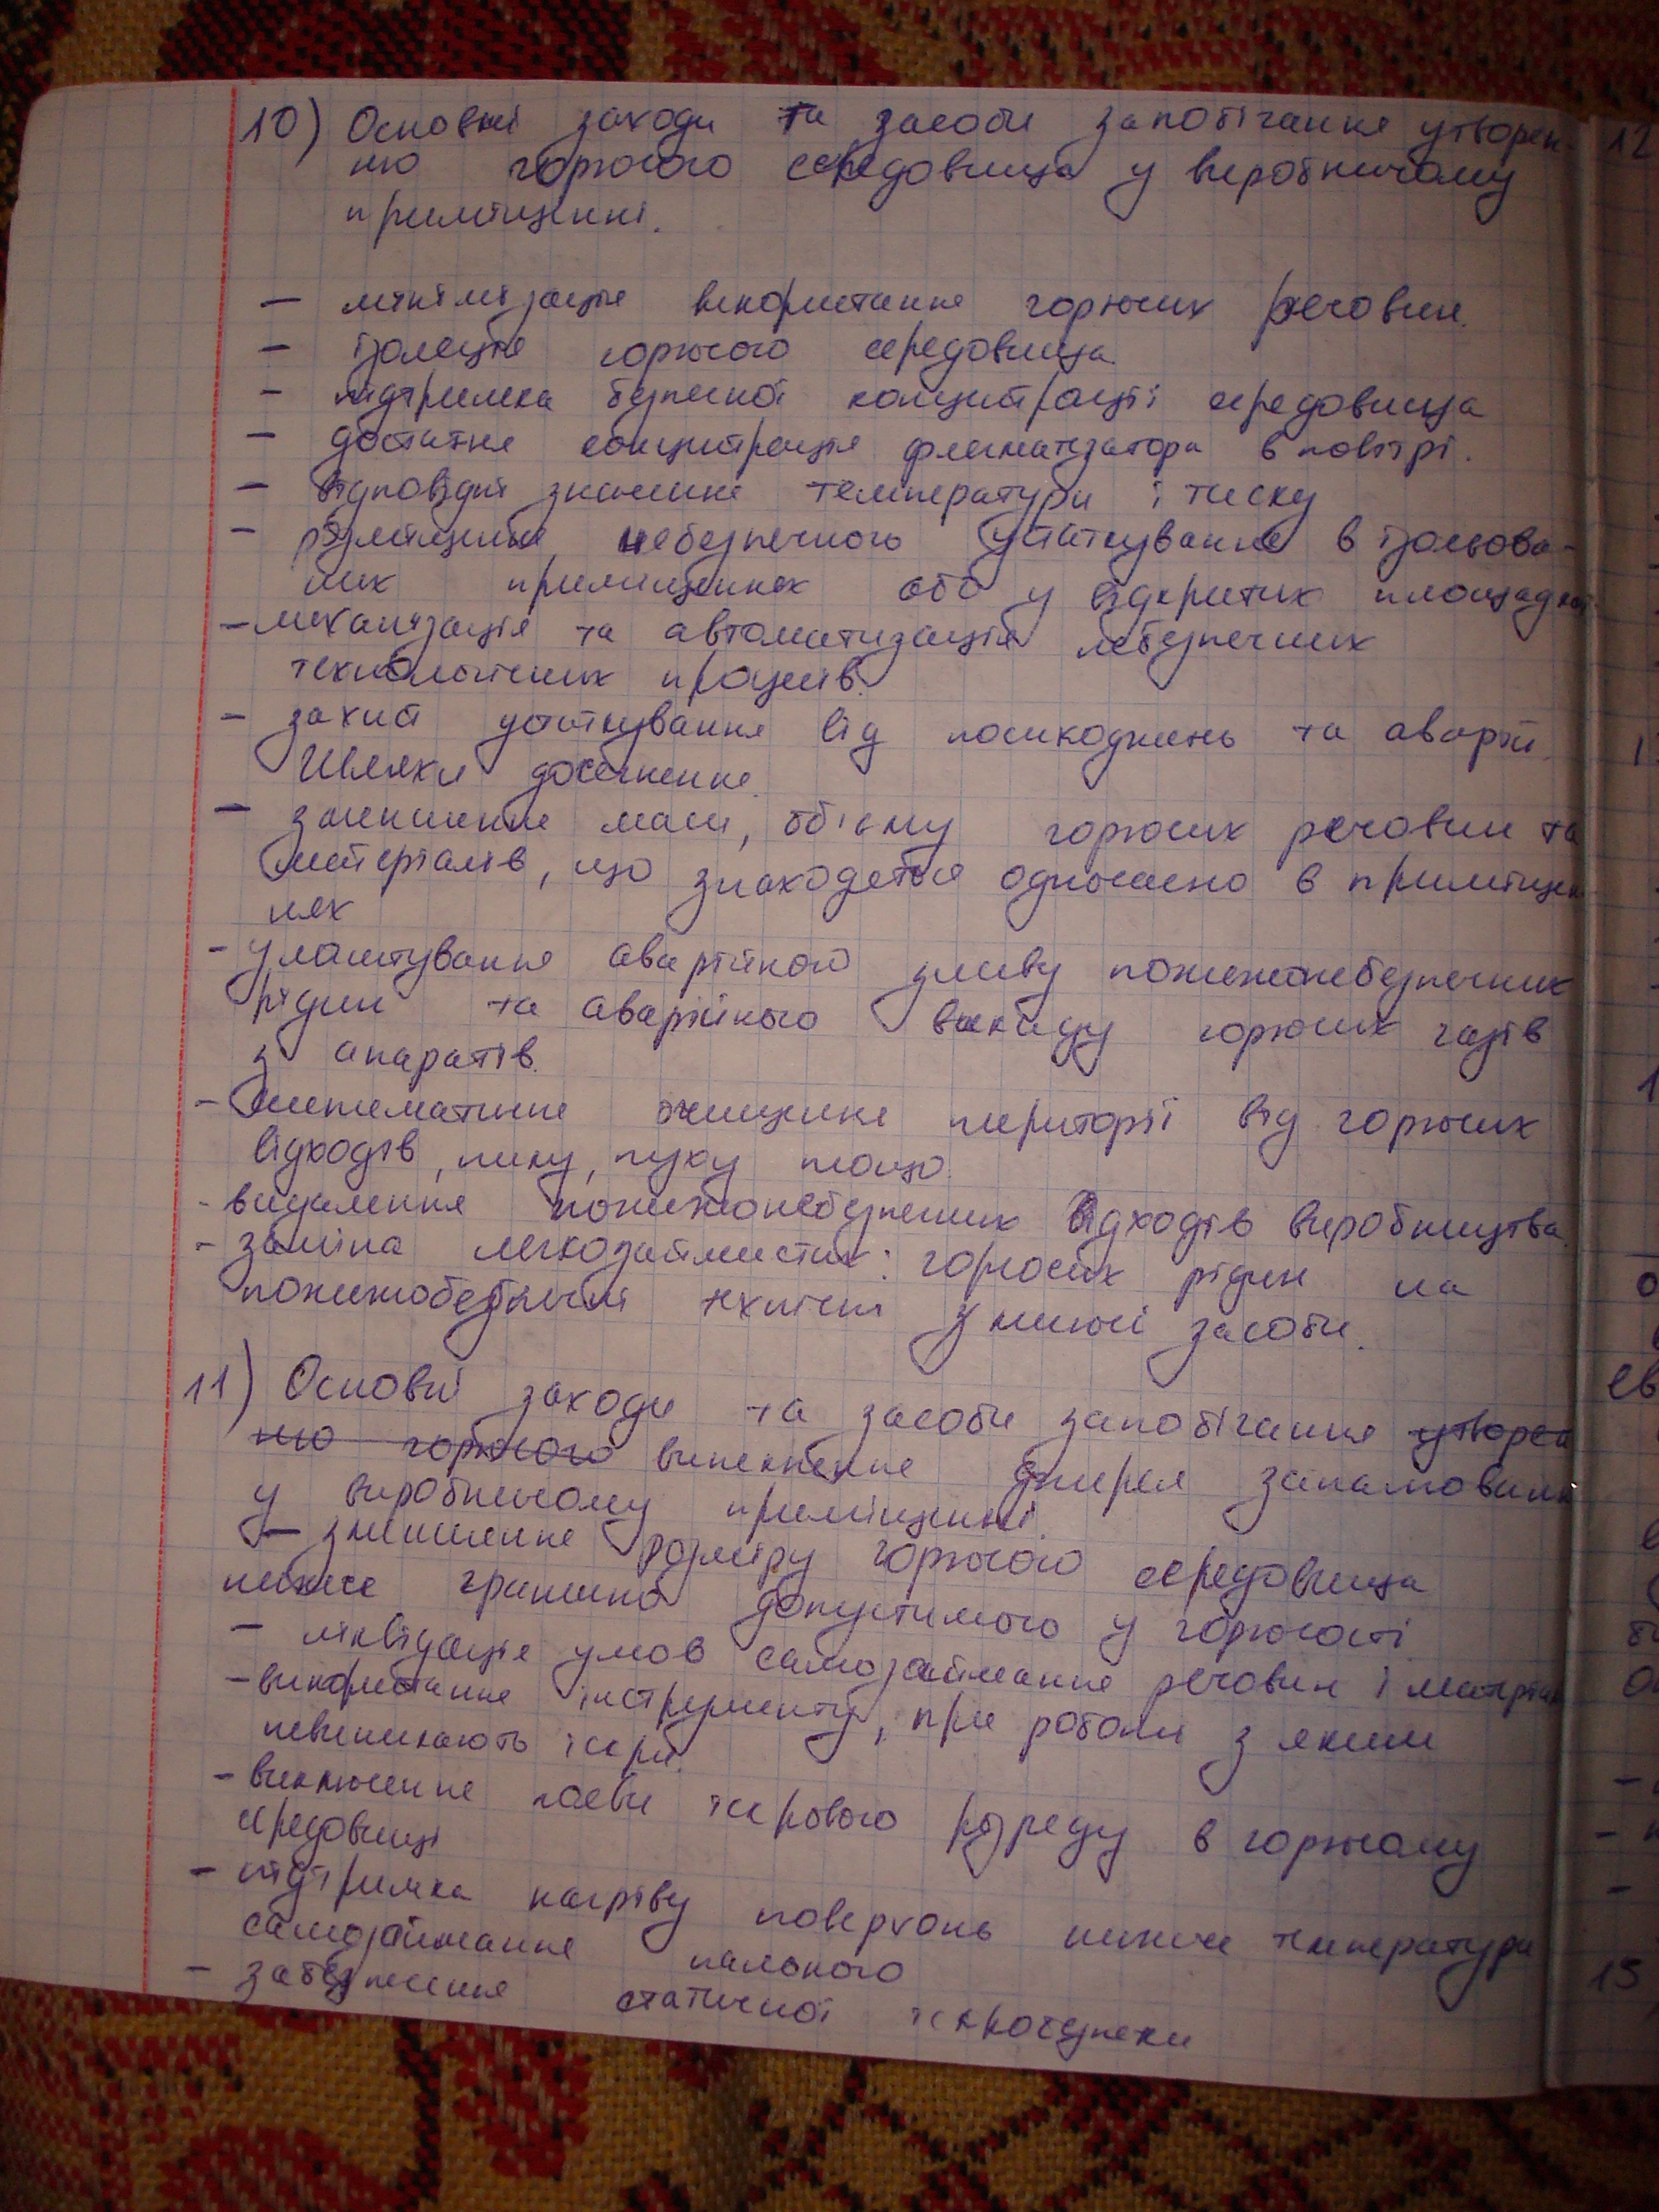 10) Основні заходи та засоби запобігання утворен-
ню горючого середовища у виробничому
приміщенні.
— мінімізація використання горючих речовин.
— ізоляція горючого середовища.
— підтримка безпечної концентрації середовища
— достатня концентрація флегматизатора в повітрі.
— відповідні значення температури і тиску
— розміщення небезпечного устаткування в ізольова-
них приміщеннях або у відкритих площадках
— механізація та автоматизація небезпечних
технологічних процесів.
— захист устаткування від пошкоджень та аварій.
Шляхи досягнення.
— зменшення маси, обієму горючих речовин та
матеріалів, що знаходяться одночасно в приміщен-
нях
- улаштування аварійного зливу пожежонебезпечних
рідин та аварійного викиду горючих газів
з апаратів.
- систематичне очищення території від горючих
відходів, пилу, пуху тощо.
- видалення пожежонебезпечних відходів виробництва.
- заміна легкозаймистих і горючих рідин на
пожежобезпечні технічні миючі засоби.
11) Основні заходи та засоби запобігання утворен
ню горючого виникнення джерел запалювання
у виробничому приміщенні.
— зменшення розміру горючого середовища
нижче гранично допустимого у горючості
— ліквідація умов самозаймання речовин і матеріалів
- використання інструменту, при роботі з яким
невиникають іскри.
- виключення появи іскрового розряду в горючому
середовищі
- підтримка нагріву поверхонь нижче температури
самозаймання пального
- забезпечення статичної іскробезпеки
12
15